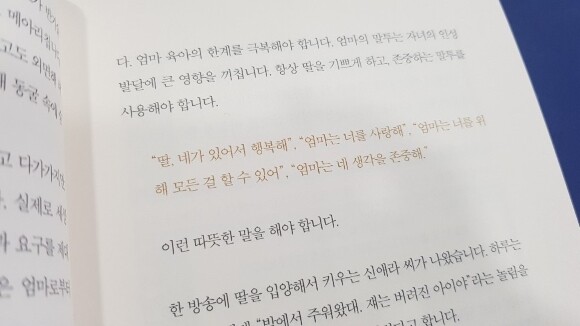 메아리친다
고도 외면해
동굴 속에
고 다가가지만
. 실제로
요구를
은 엄마로부터
다. 엄마 육아의 한계를 극복해야 합니다. 엄마의 말투는 자녀의 인성
발달에 큰 영향을 끼칩니다. 항상 딸을 기쁘게 하고, 존중하는 말투를
사용해야 합니다.
“딸, 네가 있어서 행복해”, “엄마는 너를 사랑해”, “엄마는 너를 위
해 모든 걸 할 수 있어”, “엄마는 네 생각을 존중해.”
이런 따뜻한 말을 해야 합니다.
한 방송에 딸을 입양해서 키우는 신애라 씨가 나왔습니다. 하루는
“밖에서 주워왔대. 쟤는 버려진 아이야”라는 놀림을
다고 합니다.